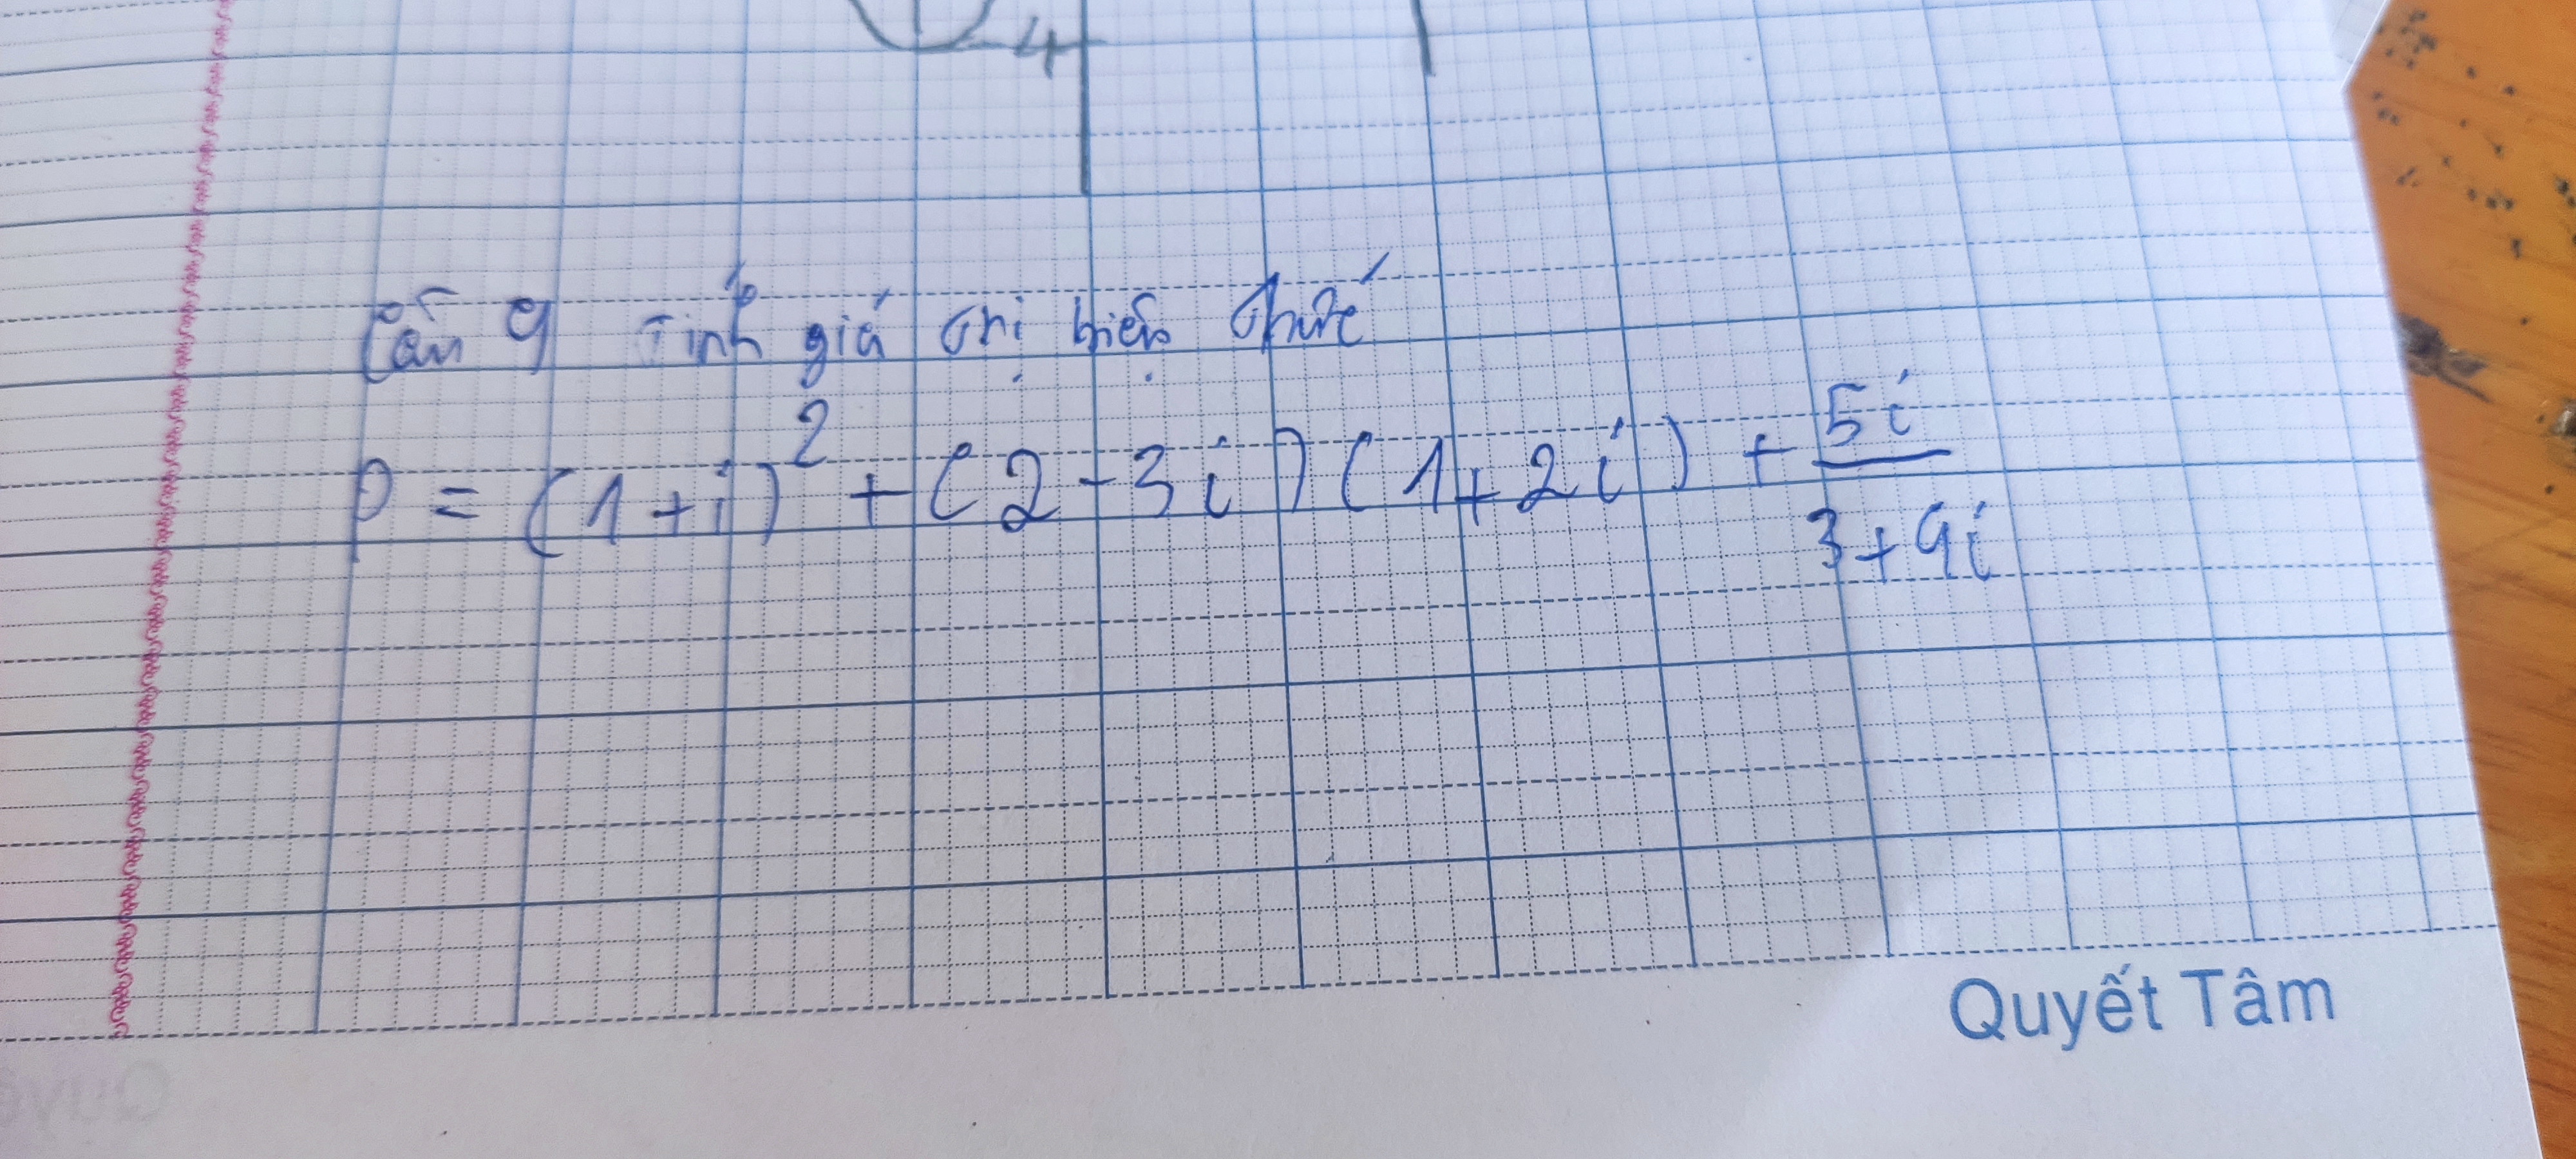 -4
Câu 9 Tính giá trị biểu thức
P = (1+i)² + (2-3i)(1+2i) + 5i/3+4i
Quyết Tâm